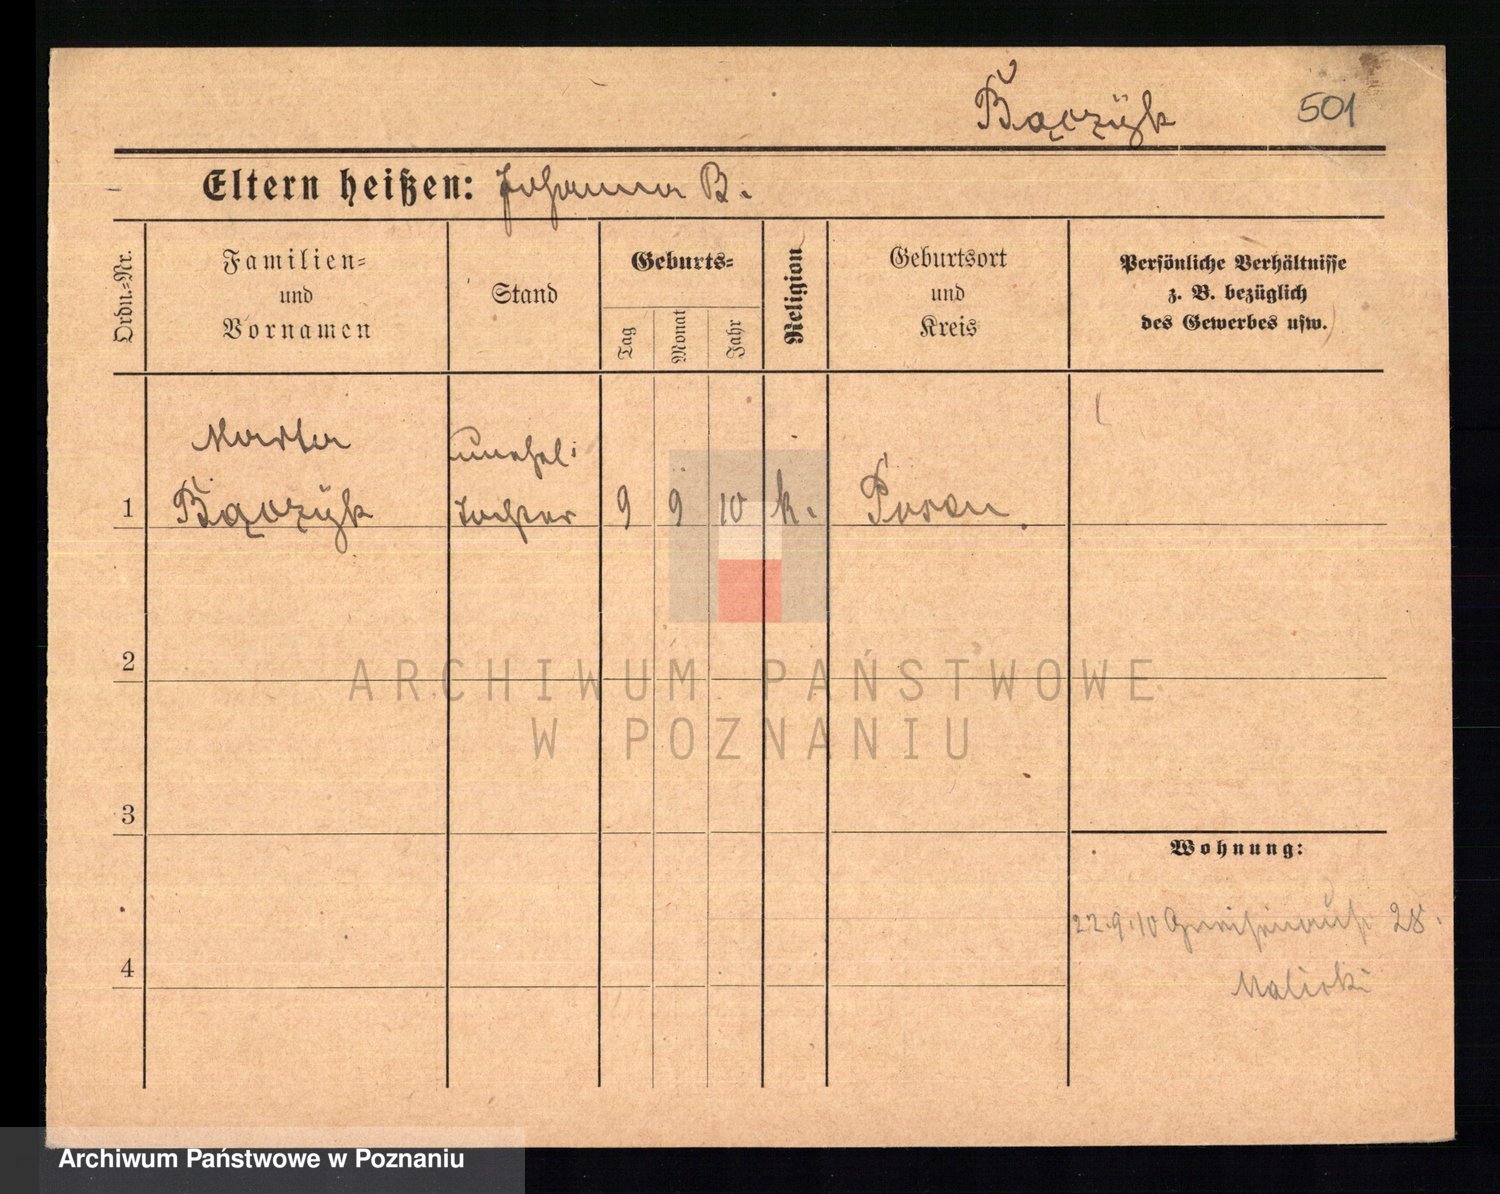 Bączÿk 501
Eltern heißen: Johanna B.
Ordn.-Nr.
Familien-
und
Vornamen
Stand
Geburts-
Tag
Monat
Jahr
Religion
Geburtsort
und
Kreis
Persönliche Verhältnisse
z. B. bezüglich
des Gewerbes usw.
Marta unehel.
1 Bączÿk Tochter 9 9 10 k. Posen.
2
3
Wohnung:
22.9.10 28.
4
Archiwum Państwowe
w Poznaniu
Archiwum Państwowe w Poznaniu